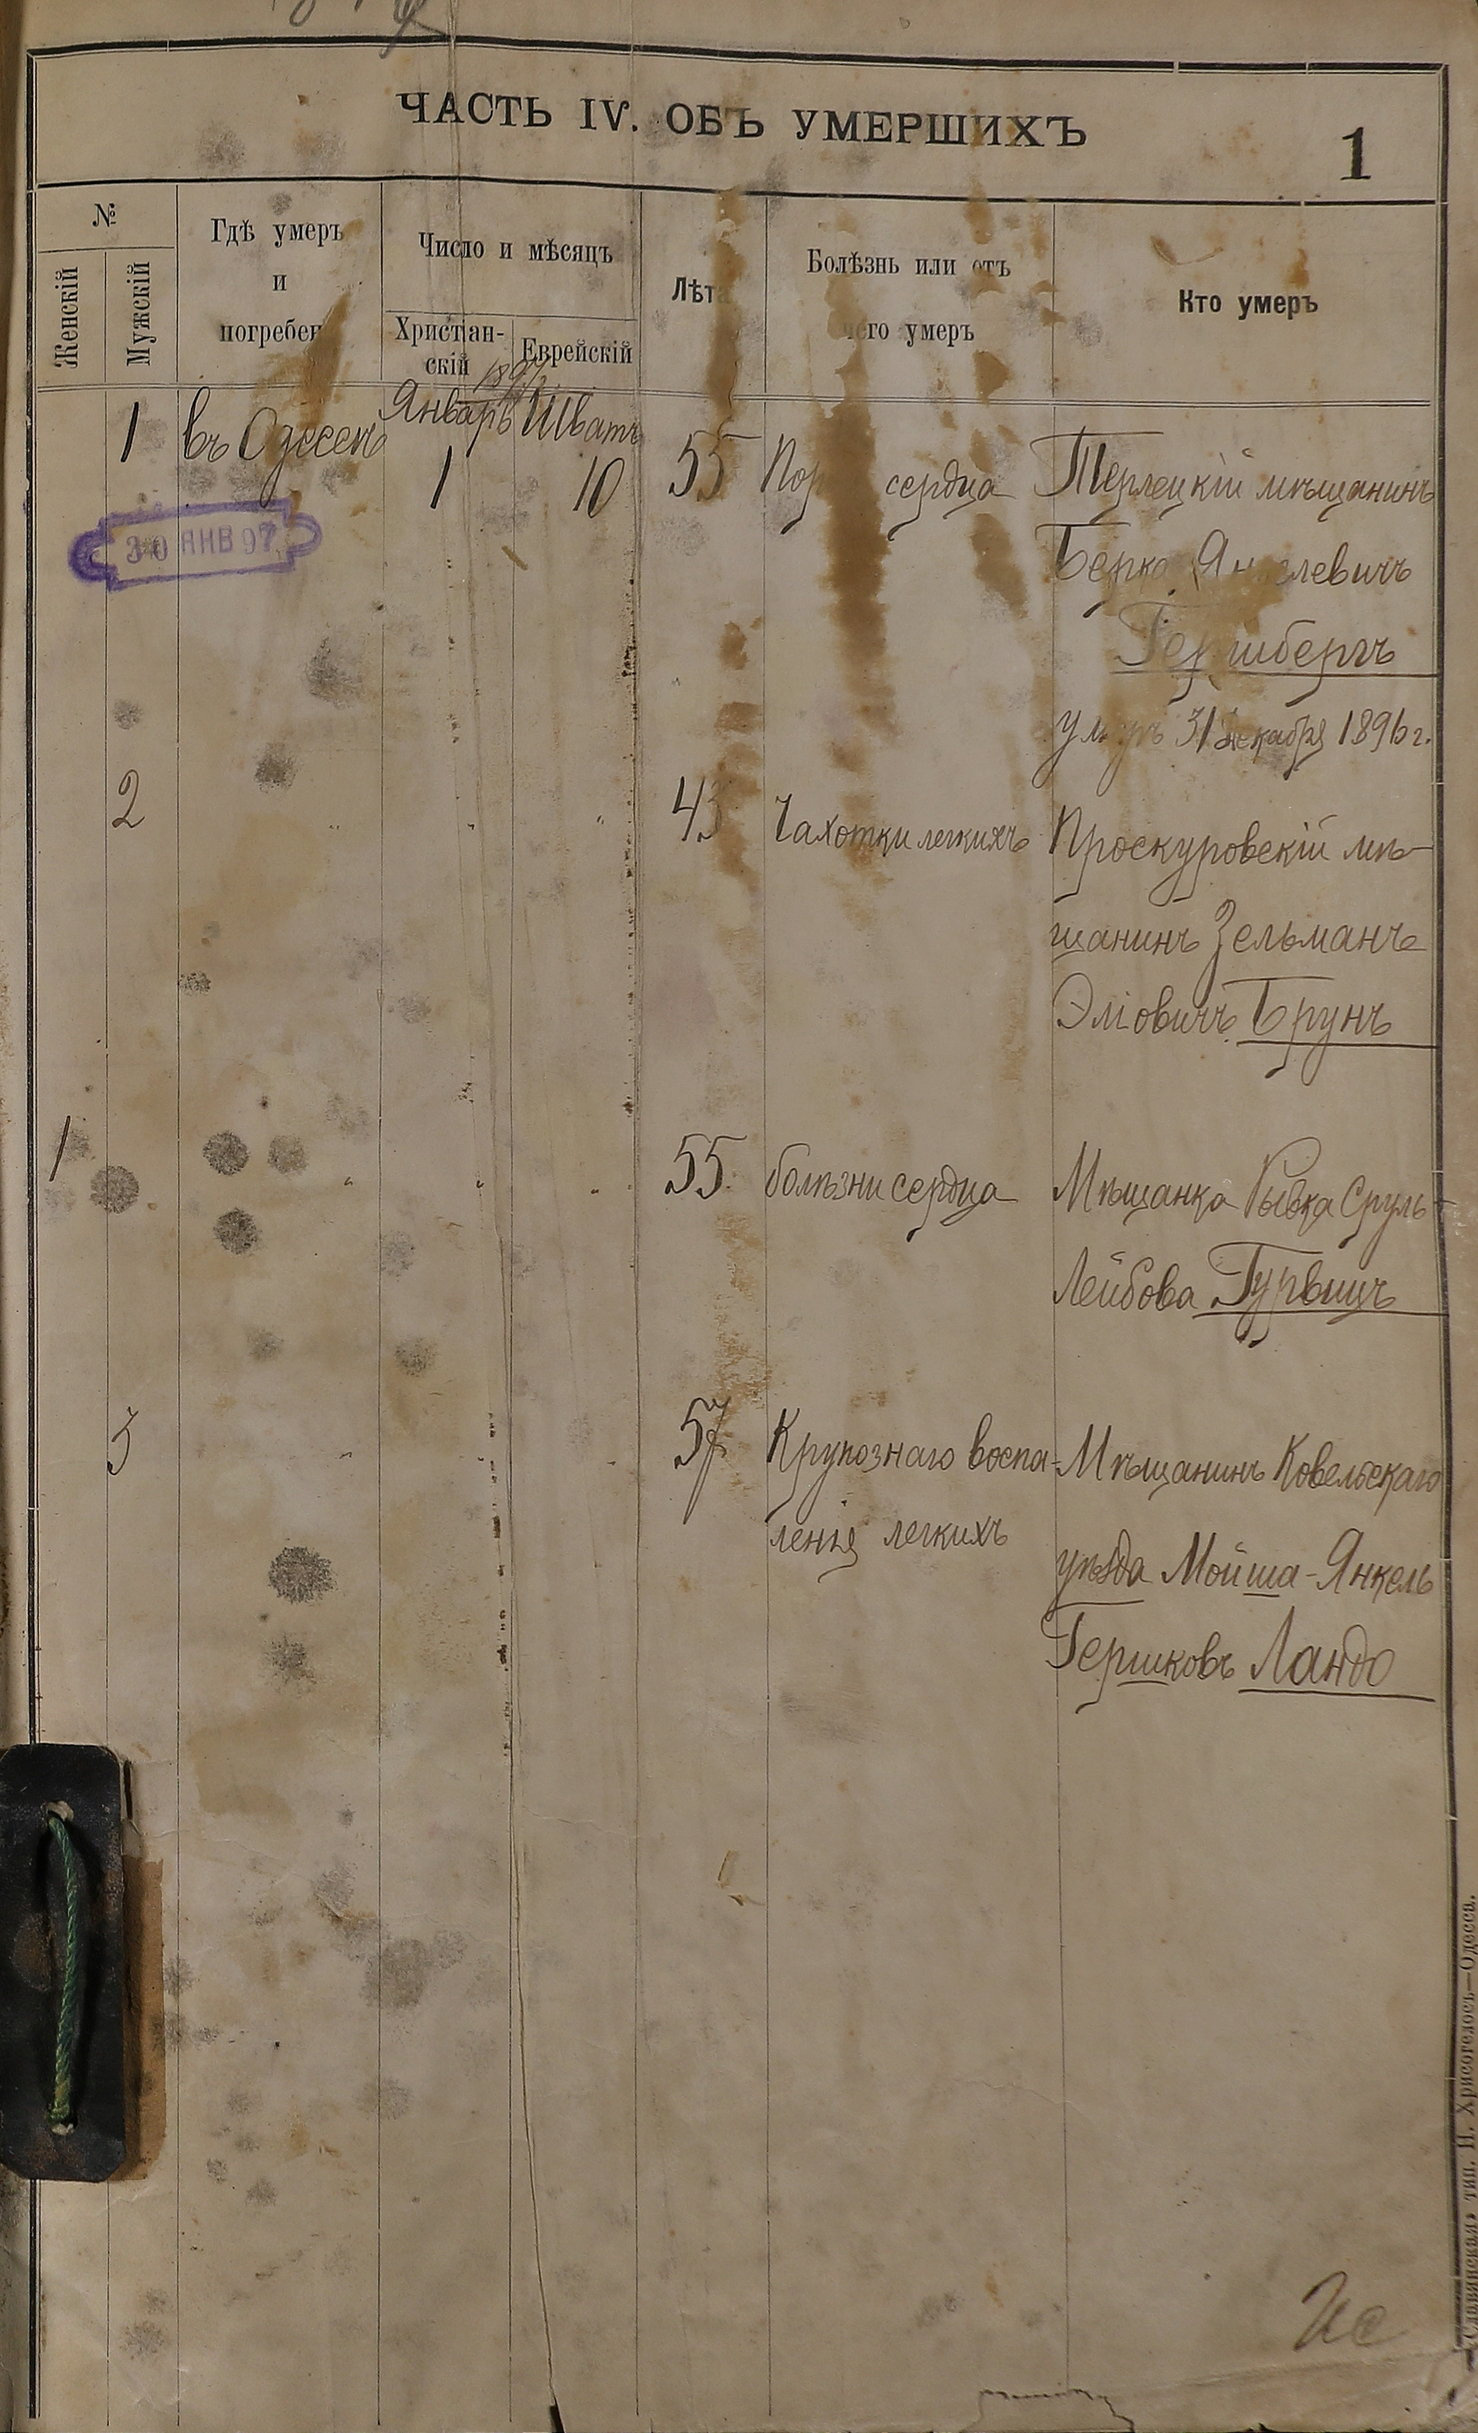 ЧАСТЬ IV. ОБЪ УМЕРШИХЪ
1
№
Женскій
Мужскій
Гдѣ умеръ
и
погребен
Число и мѣсяцъ
Христіан-
скій
Еврейскій
Лѣта
Болѣзнь или отъ
чего умеръ
Кто умеръ
1897
1 въ Одессѣ Январь Шватъ
1 10 55 Пор сердца Терлецкій мѣщанинъ
30 ЯНВ 97
Берко Янкелевичъ
Гершбергъ
умеръ 31 декабря 1896 г.
2 " " " 43 Чахотки легкихъ Проскуровскій мѣ-
щанинъ Зельманъ
Эліовичъ Брунъ
1 " " " 55 болѣзни сердца Мѣщанка Рывка Сруль-
Лейбова Гурвицъ
3 " " " 57 Крупознаго воспа- Мѣщанинъ Ковельскаго
ленія легкихъ уѣзда Мойша-Янкель
Гершковъ Ландо
«Славянская» тип. Н. Хрисогелосъ—Одесса.